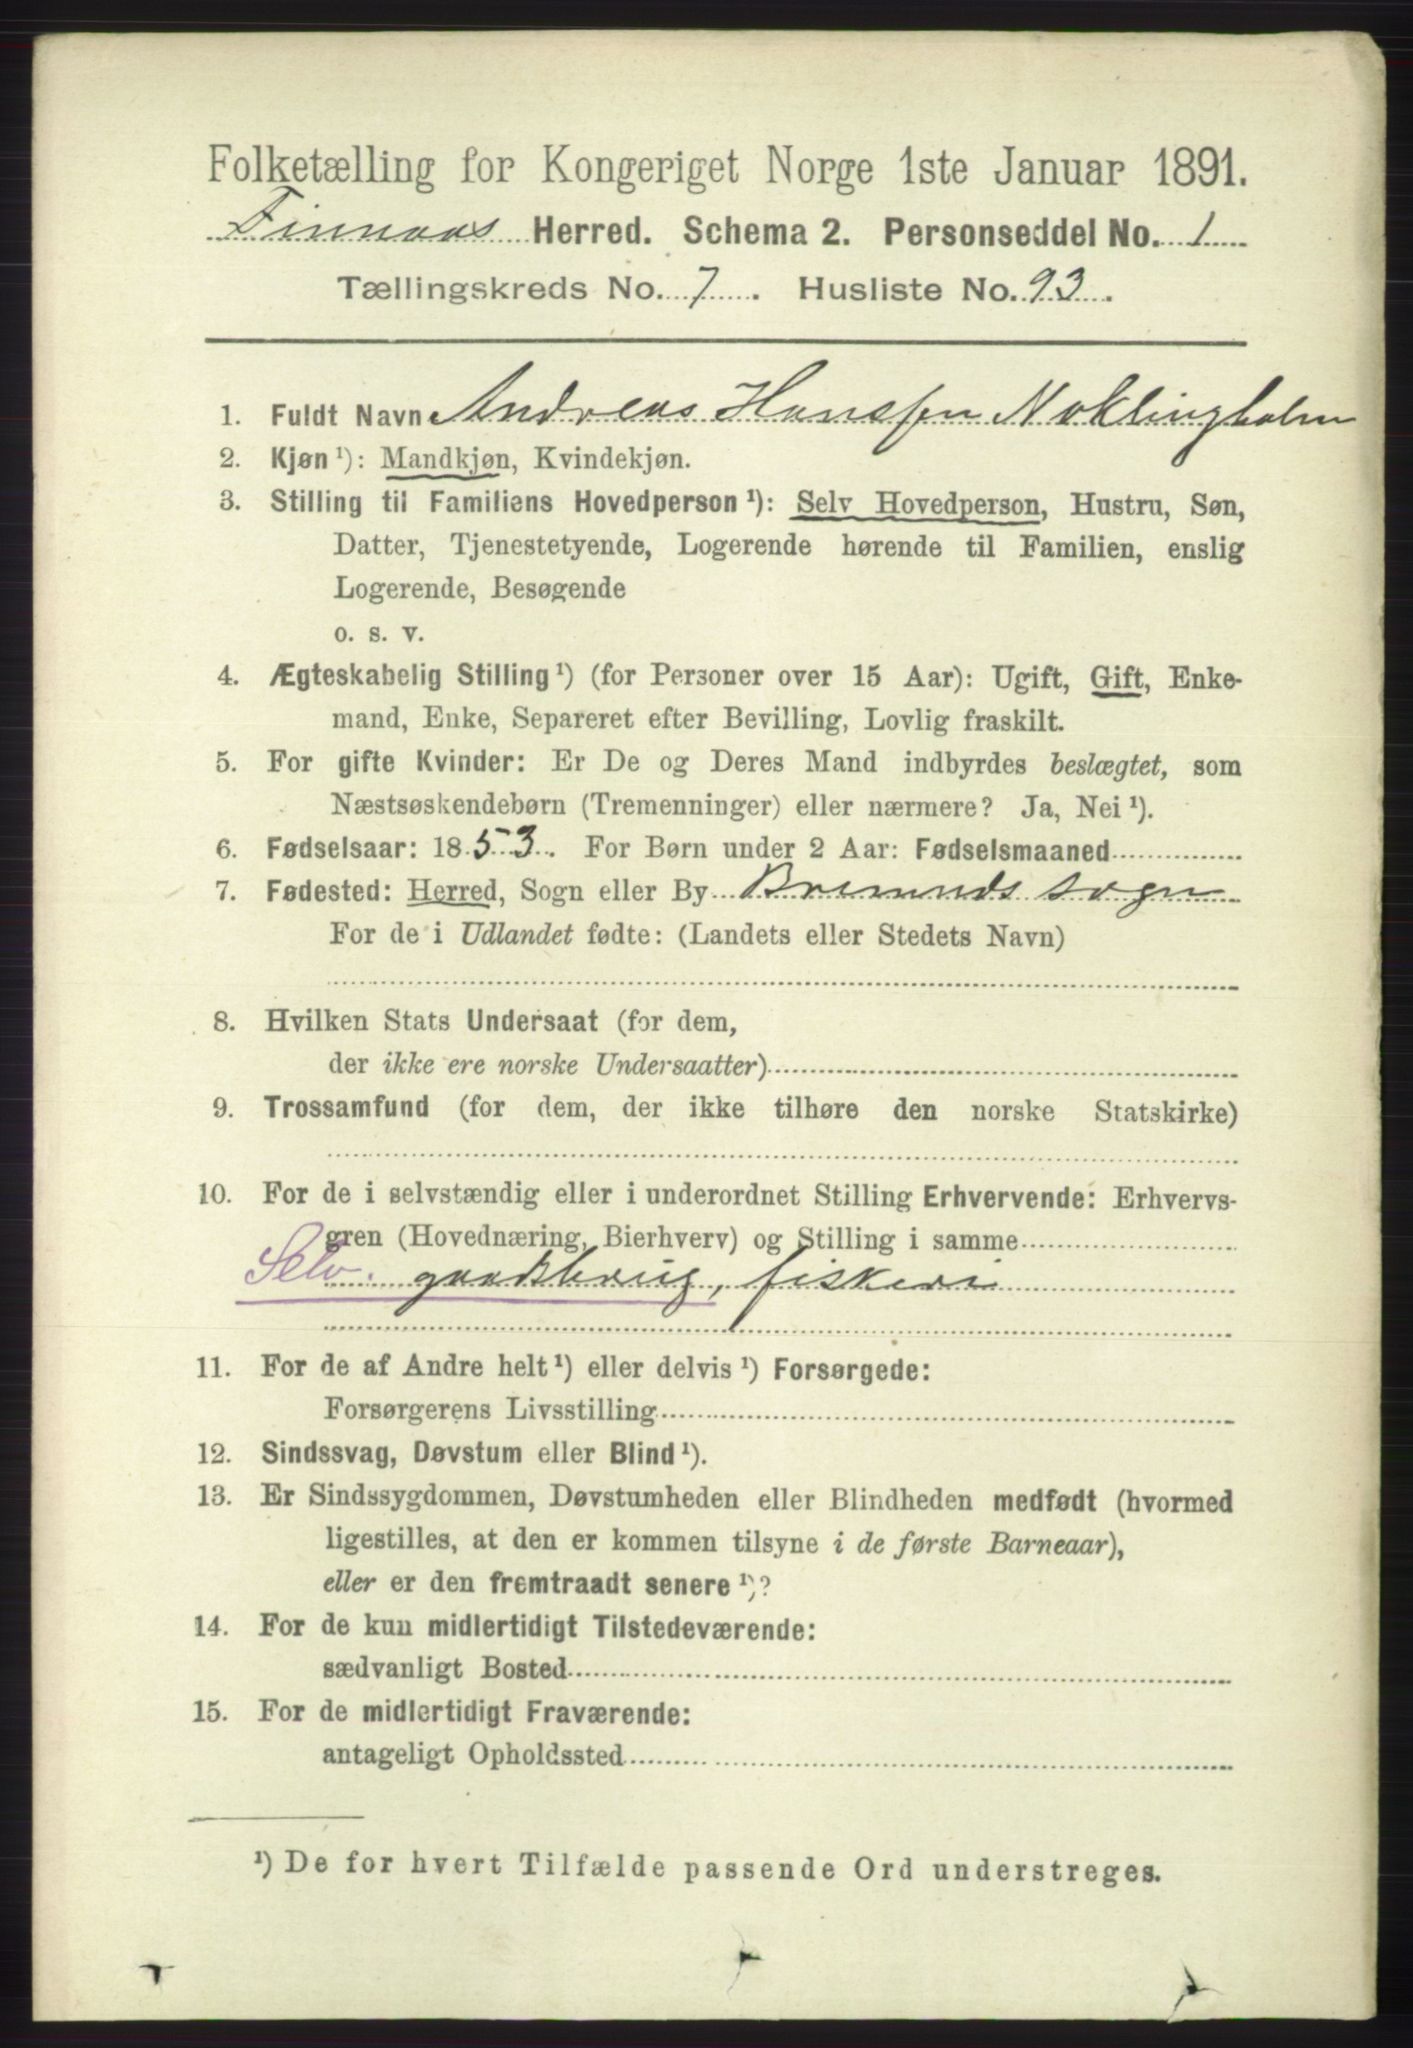 Folketælling for Kongeriget Norge 1ste Januar 1891.
Finnaas Herred. Schema 2. Personseddel No. 1
Tællingskreds No. 7. Husliste No. 93.
1. Fuldt Navn Andreas Hanssen Nøklingholm
2. Kjøn ¹): Mandkjøn, Kvindekjøn.
3. Stilling til Familiens Hovedperson ¹): Selv Hovedperson, Hustru, Søn,
Datter, Tjenestetyende, Logerende hørende til Familien, enslig
Logerende, Besøgende
o. s. v.
4. Ægteskabelig Stilling ¹) (for Personer over 15 Aar): Ugift, Gift, Enke-
mand, Enke, Separeret efter Bevilling, Lovlig fraskilt.
5. For gifte Kvinder: Er De og Deres Mand indbyrdes beslægtet, som
Næstsøskendebørn (Tremenninger) eller nærmere? Ja, Nei ¹).
6. Fødselsaar: 1853. For Børn under 2 Aar: Fødselsmaaned
7. Fødested: Herred, Sogn eller By Bremnds sogn
For de i Udlandet fødte: (Landets eller Stedets Navn)
8. Hvilken Stats Undersaat (for dem,
der ikke ere norske Undersaatter)
9. Trossamfund (for dem, der ikke tilhøre den norske Statskirke)
10. For de i selvstændig eller i underordnet Stilling Erhvervende: Erhvervs-
gren (Hovednæring, Bierhverv) og Stilling i samme
Selv. gaardbrug, fiskeri
11. For de af Andre helt ¹) eller delvis ¹) Forsørgede:
Forsørgerens Livsstilling
12. Sindssvag, Døvstum eller Blind ¹).
13. Er Sindssygdommen, Døvstumheden eller Blindheden medfødt (hvormed
ligestilles, at den er kommen tilsyne i de første Barneaar),
eller er den fremtraadt senere ¹)?
14. For de kun midlertidigt Tilstedeværende:
sædvanligt Bosted
15. For de midlertidigt Fraværende:
antageligt Opholdssted
¹) De for hvert Tilfælde passende Ord understreges.